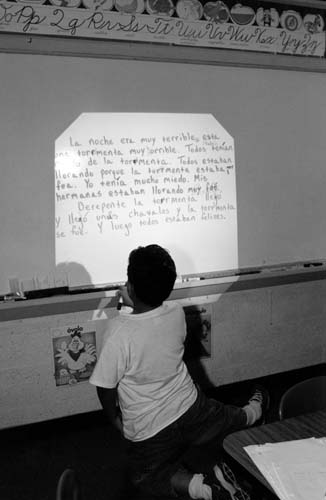 Pp Qq Rr Ss Tt Uu Vv Ww Xx Yy Zz
La noche era muy terrible, esta
una tormenta muy orrible. Todos tenían
de de la tormenta. Todos estaban
llorando porque la tormenta estaba
fea. Yo tenía mucho miedo. Mis
hermanas estaban llorando muy feo.
Derepente la torrmenta llegó
y llegó unas chavalas y la torrmenta
se fué. Y luego todos estaban felices.
óvalo